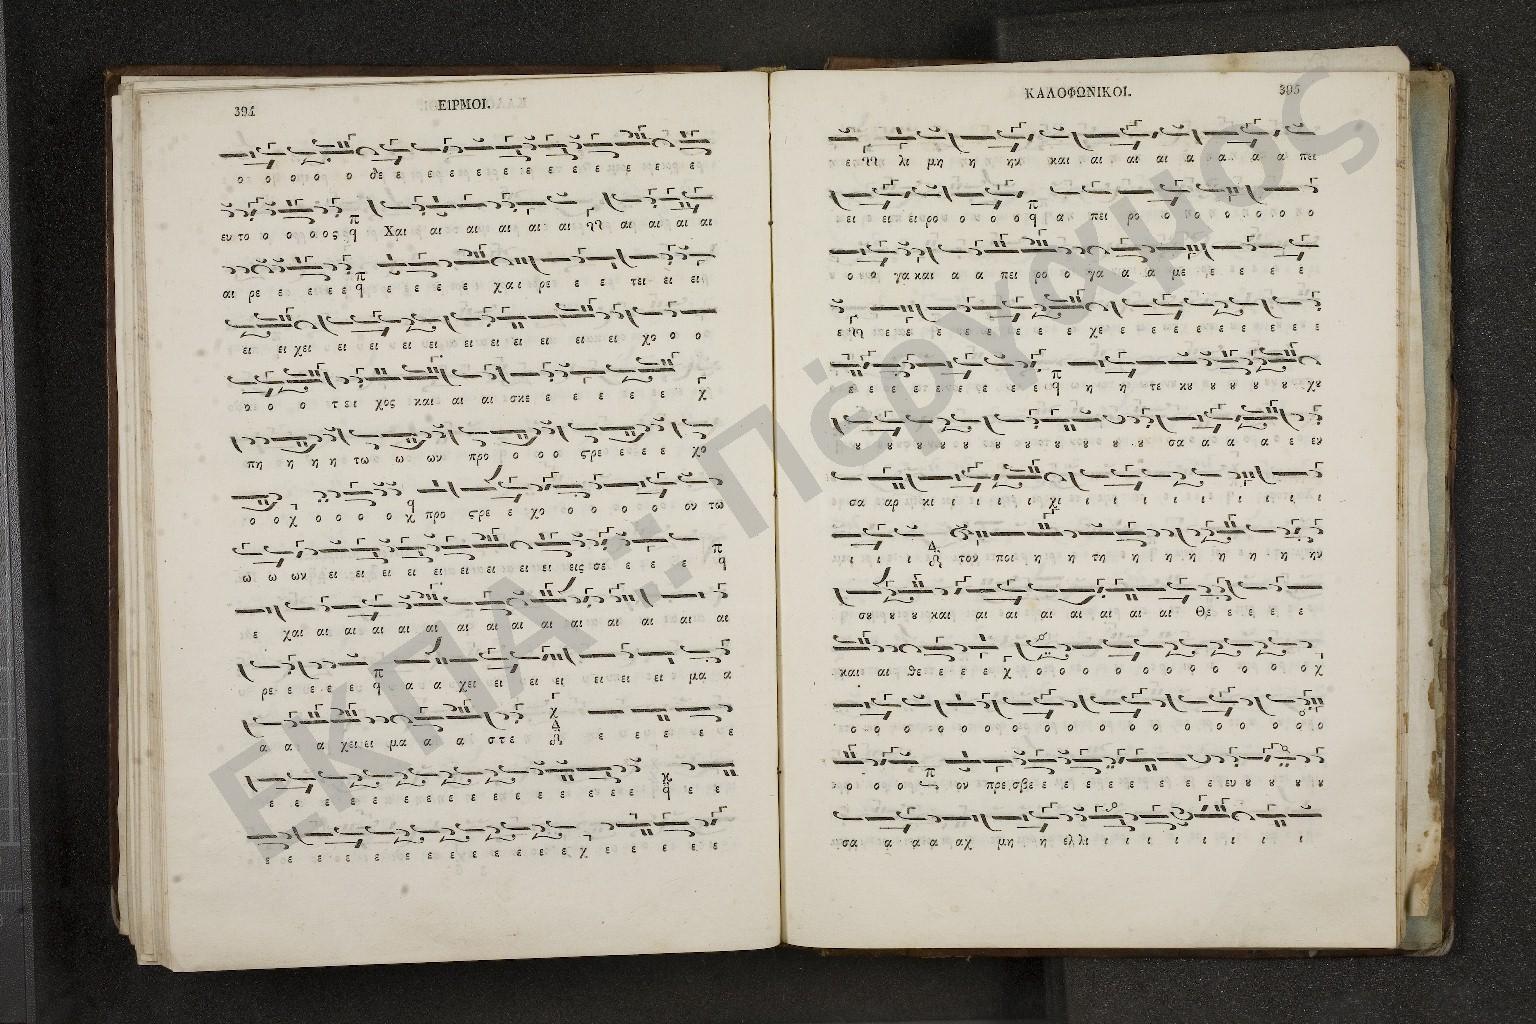 394
ΕΙΡΜΟΙ.
ο ο ο ο ο θε ε ε ε ε ε ε ε ε ε ε ε ε
ευ το ο ο ο ο ς Χαι αι αι αι αι αι αι αι αι αι
αι ρε ε ε ε ε ε ε ε ε ε χαι ρε ε ε τει ει ει
ει ει χει ει ει ει ει ει ει ει ει ει ει χο ο ο
ο ο ο τει χος και αι αι σκε ε ε ε ε ε
πη η η η τω ω ων προ ο ο ο ςρε ε ε ε χο
ο ο ο ο ο ο προ ςρε ε χο ο ο ο ο ο ον τω
ω ω ων ει ει ει ει ει ει ει ει ει ει εις σε ε ε ε
ε χαι αι αι αι αι αι αι αι αι αι αι αι αι αι αι αι
ρε ε ε ε ε α α χει ει ει ει ει ει ει μα α
α α α χει ει μα α α στε ε ε ε ε ε
ε ε ε ε ε ε ε ε ε ε ε ε ε ε ε
ε ε ε ε ε ε ε ε ε ε ε ε ε ε ε ε ε
ΚΑΛΟΦΩΝΙΚΟΙ.
395
ε λι μη η ην και αι αι αι α α α α πει
ει ει ει ρο ο ο ο α πει ρο ο ο ο ο ο ο ο
ο ο γα και α α πει ρο ο γα α α με ε ε ε ε ε
ε ε ε ε ε ε ε ε ε χε ε ε ε ε ε ε ε ε
ε ε ε ε ε ε ε ε ε η η τε κȣ ȣ ȣ ȣ ȣ χȣ
ȣ ȣ ȣ ȣ ȣ ȣ ȣ ȣ ȣ ȣ ȣ ȣ ȣ σα α α α ε εν
σα αρ κι ι ι ι ι χι ι ι ι ι ι ι ι ι ι ι ι
ι ι ι ι τον ποι η η τη η η η η η η η ην
σȣ ȣ ȣ και αι αι αι αι αι αι αι Θε ε ε ε ε
και αι θε ε ε ε ο ο ο ο ο ο ο ο ο ο ο ο
ο ο ο ο ο ο ο ο ο ο ο ο ο ο ο ο ο ο
ο ο ο ο ον πρε σβε ε ε ε ε ε ε ε ε ευ ȣ ȣ ȣ ȣ
σα α α α αχ μη η ελ λι ι ι ι ι ι ι ι ι ι
ΕΚΠΑ :: Πέργαμος